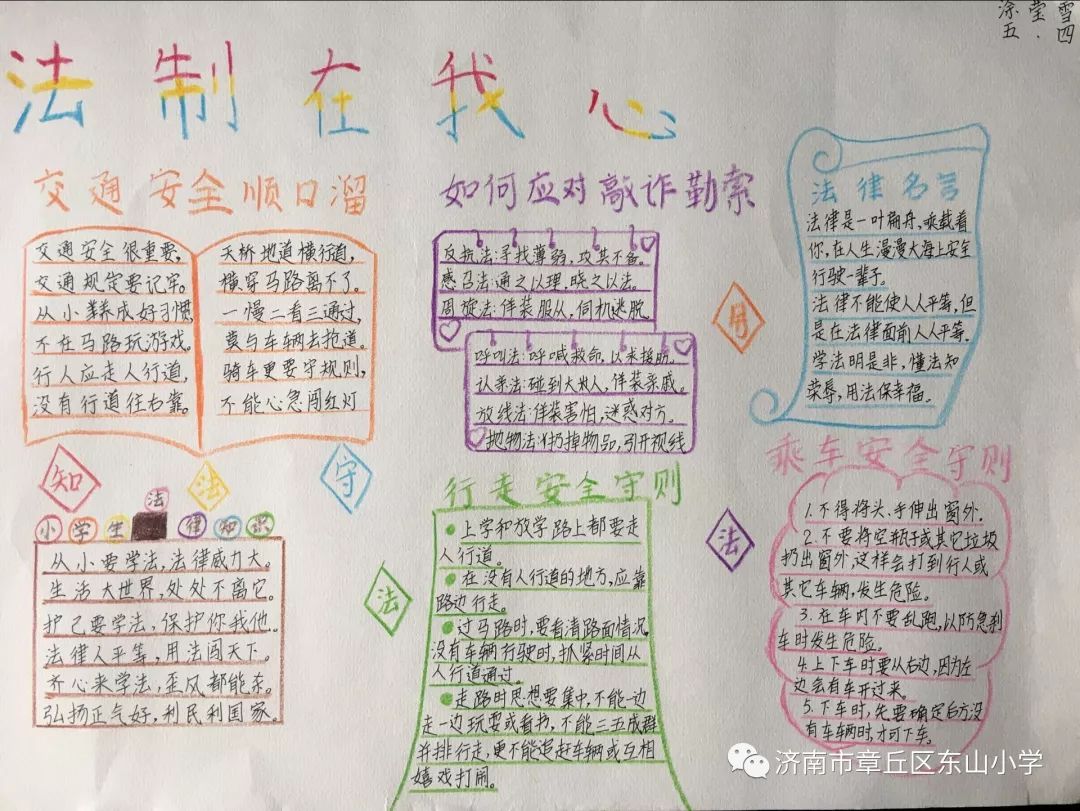 涂莹雪
五.四
法制在我心
交通安全顺口溜
交通安全很重要,
交通规定要记牢。
从小养成好习惯,
不在马路玩游戏。
行人应走人行道,
没有行道往右靠。
天桥地道横行道,
横穿马路离不了。
一慢二看三通过,
莫与车辆去抢道。
骑车更要守规则,
不能心急闯红灯
如何应对敲诈勒索
反抗法:寻找薄弱,攻其不备。
感召法:通之以理,晓之以法。
周旋法:佯装服从,伺机逃脱。
呼叫法:呼喊救命,以求援助。
认亲法:碰到大人,佯装亲戚。
放线法:佯装害怕,迷惑对方。
抛物法:扔掉物品,引开视线
法律名言
法律是一叶扁舟,乘载着
你,在人生漫漫大海上安全
行驶一辈子。
法律不能使人人平等,但
是在法律面前人人平等.
学法明是非,懂法知
荣辱,用法保幸福。
知
法
守
法
用
法
小学生法律知识
从小要学法,法律威力大。
生活大世界,处处不离它。
护己要学法,保护你我他。
法律人平等,用法闯天下。
齐心来学法,歪风都能杀。
弘扬正气好,利民利国家。
行走安全守则
上学和放学路上都要走
人行道。
在没有人行道的地方,应靠
路边行走。
过马路时,要看清路面情况,
没有车辆行驶时,抓紧时间从
人行道通过。
走路时思想要集中,不能一边
走一边玩耍或看书,不能三五成群
并排行走,更不能追赶车辆或互相
嬉戏打闹。
乘车安全守则
1.不得将头、手伸出窗外.
2.不要将空瓶子或其它垃圾
扔出窗外,这样会打到行人或
其它车辆,发生危险。
3.在车内不要乱跑,以防急刹
车时发生危险。
4.上下车时要从右边,因为左
边会有车开过来。
5.下车时,先要确定后方没
有车辆时,才可下车。
济南市章丘区东山小学